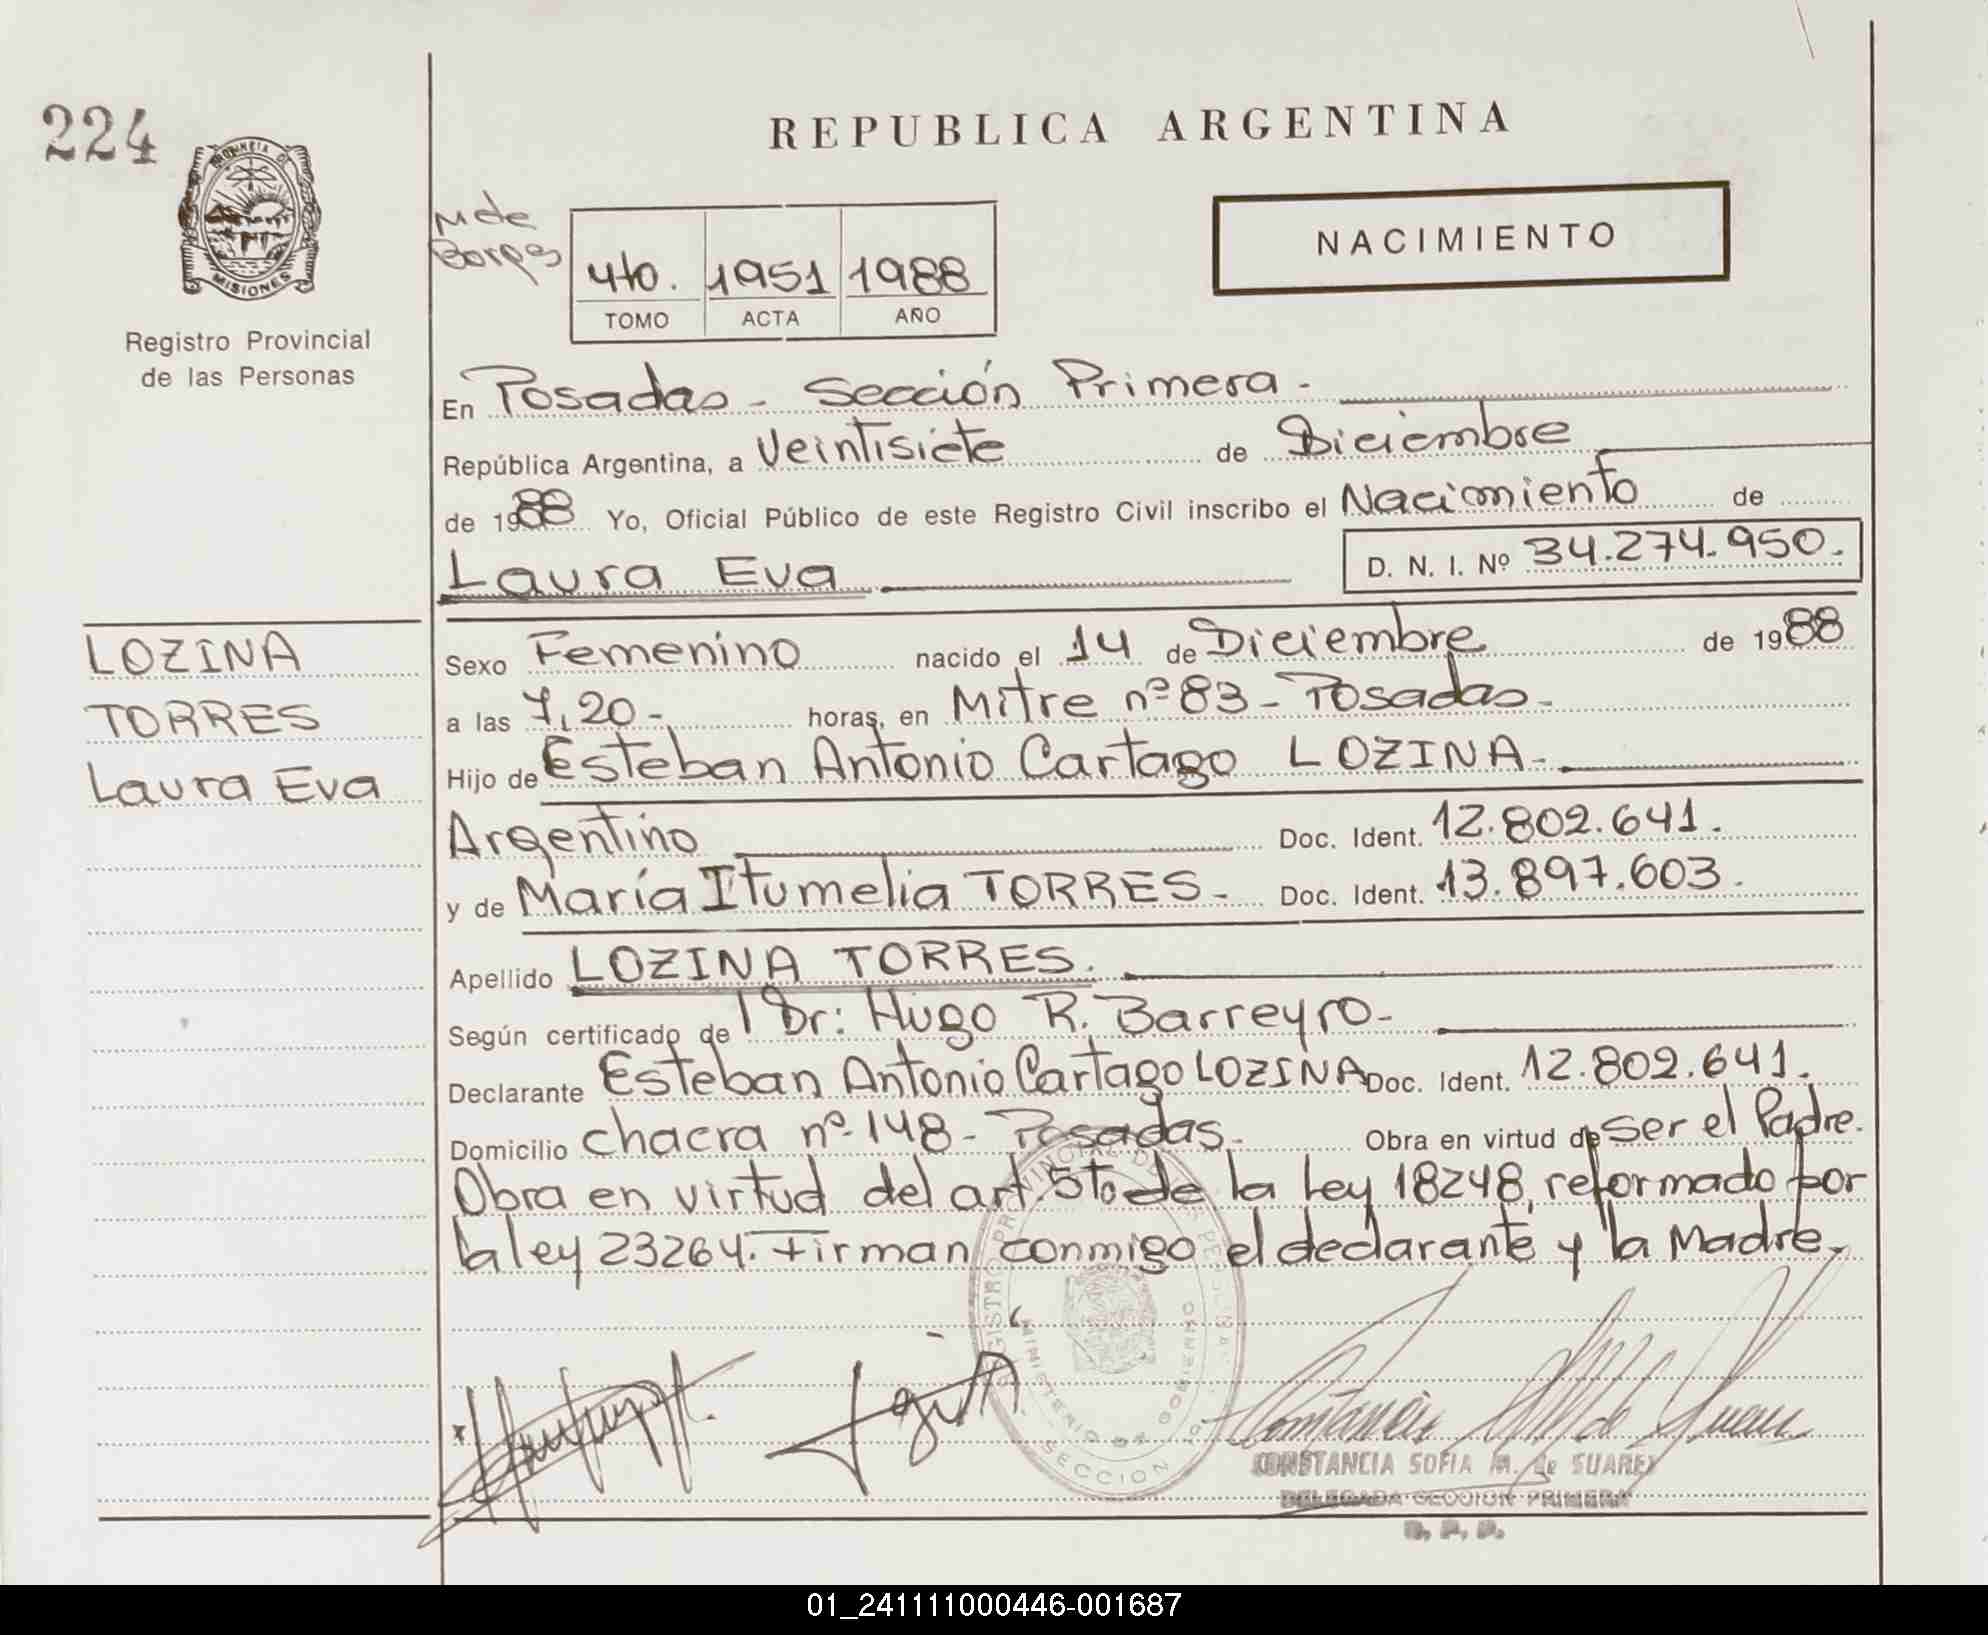 224
PROVINCIA DE
MISIONES
Registro Provincial
de las Personas
LOZINA
TORRES
Laura Eva
REPUBLICA ARGENTINA
M de
Borges
4to. 1951 1988
TOMO ACTA AÑO
NACIMIENTO
En Posadas - Sección Primera -
República Argentina, a Veintisiete de Diciembre
de 1988 Yo, Oficial Público de este Registro Civil inscribo el Nacimiento de
Laura Eva D. N. I. Nº 34.274.950.
Sexo Femenino nacido el 14 de Diciembre de 1988
a las 7,20 - horas, en Mitre nº 83 - Posadas -
Hijo de Esteban Antonio Cartago LOZINA -
Argentino Doc. Ident. 12.802.641.
y de María Itumelia TORRES - Doc. Ident. 13.897.603.
Apellido LOZINA TORRES.
Según certificado de Dr: Hugo R. Barreyro -
Declarante Esteban Antonio Cartago LOZINA Doc. Ident. 12.802.641.
Domicilio chacra nº 148 - Posadas - Obra en virtud de ser el Padre.
Obra en virtud del art. 5to de la ley 18248, reformado por
la ley 23264. Firman conmigo el declarante y la Madre.
MINISTERIO DE GOBIERNO
SECCION 1º
CONSTANCIA SOFIA M. de SUAREZ
DELEGADA SECCION PRIMERA
R. P. P.
01_241111000446-001687